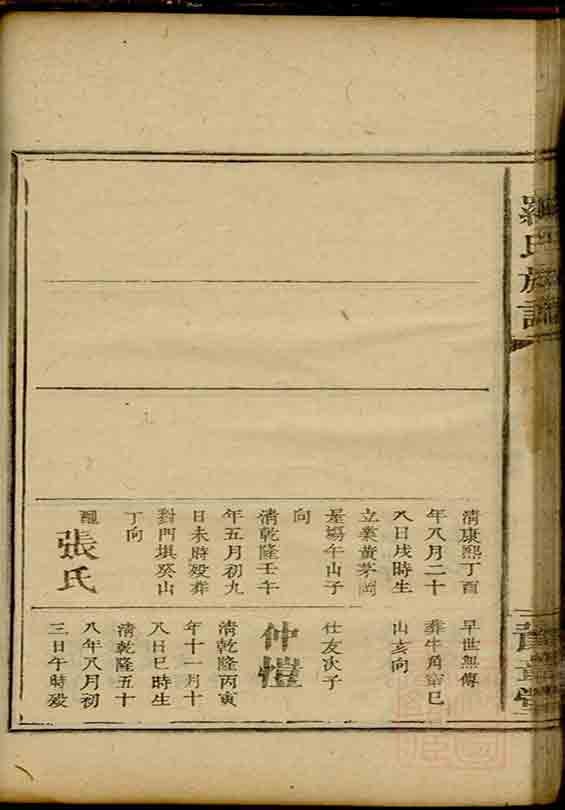 羅氏族譜
清康熙丁酉
年八月二十
八日戌時生
立業黃茅岡
屋場午山子
向
清乾隆壬午
年五月初九
日未時歿葬
對門垻癸山
丁向
配
張氏
早世無傳
葬牛角窩巳
山亥向
仕友次子
仲
清乾隆丙寅
年十一月十
八日巳時生
清乾隆五十
八年八月初
三日午時歿
章堂